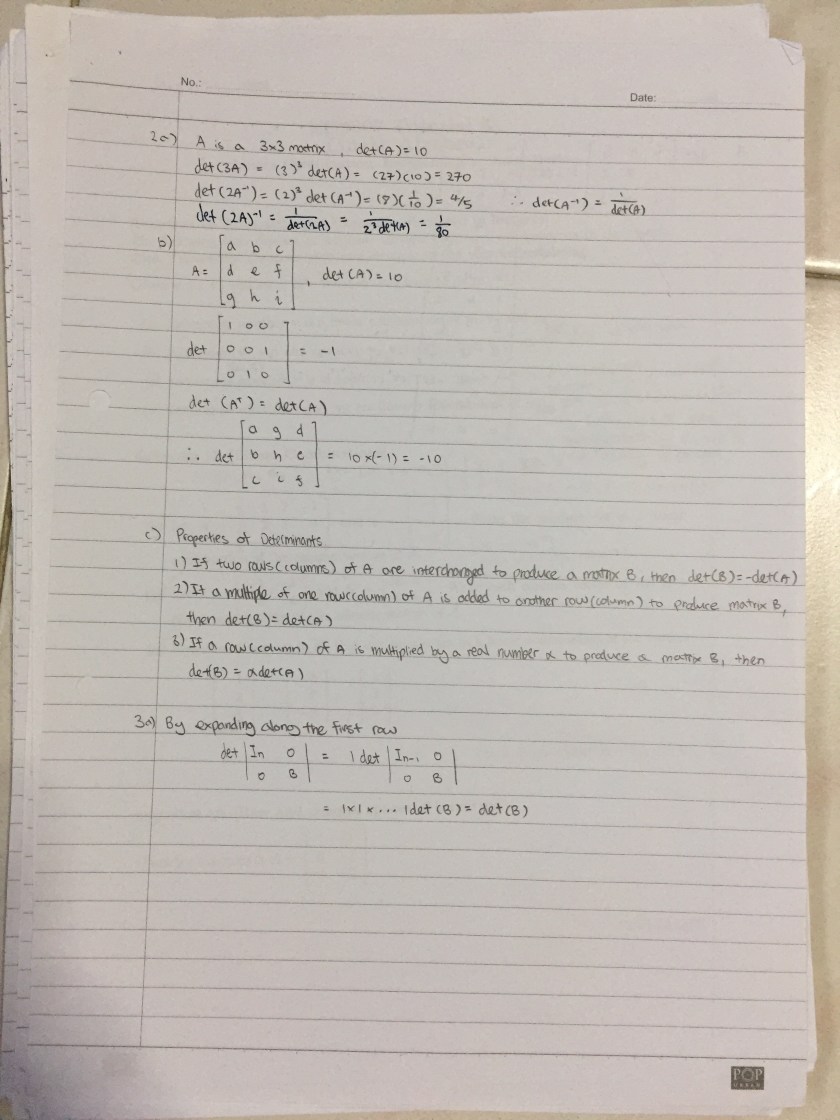 No.:
Date:
2a) A is a 3x3 matrix, det(A)=10
det(3A) = (3)³ det(A) = (27)(10) = 270
det(2A⁻¹) = (2)³ det(A⁻¹) = (8)(1/10) = 4/5 ∴ det(A⁻¹) = 1/det(A)
det(2A)⁻¹ = 1/det(2A) = 1/2³det(A) = 1/80
b)
[a b c]
A = [d e f], det(A) = 10
[g h i]
[1 0 0]
det [0 0 1] = -1
[0 1 0]
det (Aᵀ) = det(A)
[a g d]
∴ det [b h e] = 10x(-1) = -10
[c i f]
c) Properties of Determinants
1) If two rows(columns) of A are interchanged to produce a matrix B, then det(B)=-det(A)
2) If a multiple of one row(column) of A is added to another row(column) to produce matrix B,
then det(B)= det(A)
3) If a row(column) of A is multiplied by a real number α to produce a matrix B, then
det(B) = αdet(A)
3a) By expanding along the first row
det |In 0| = 1 det |In-1 0|
|0 B| |0 B|
= 1x1x... 1det(B) = det(B)
POP